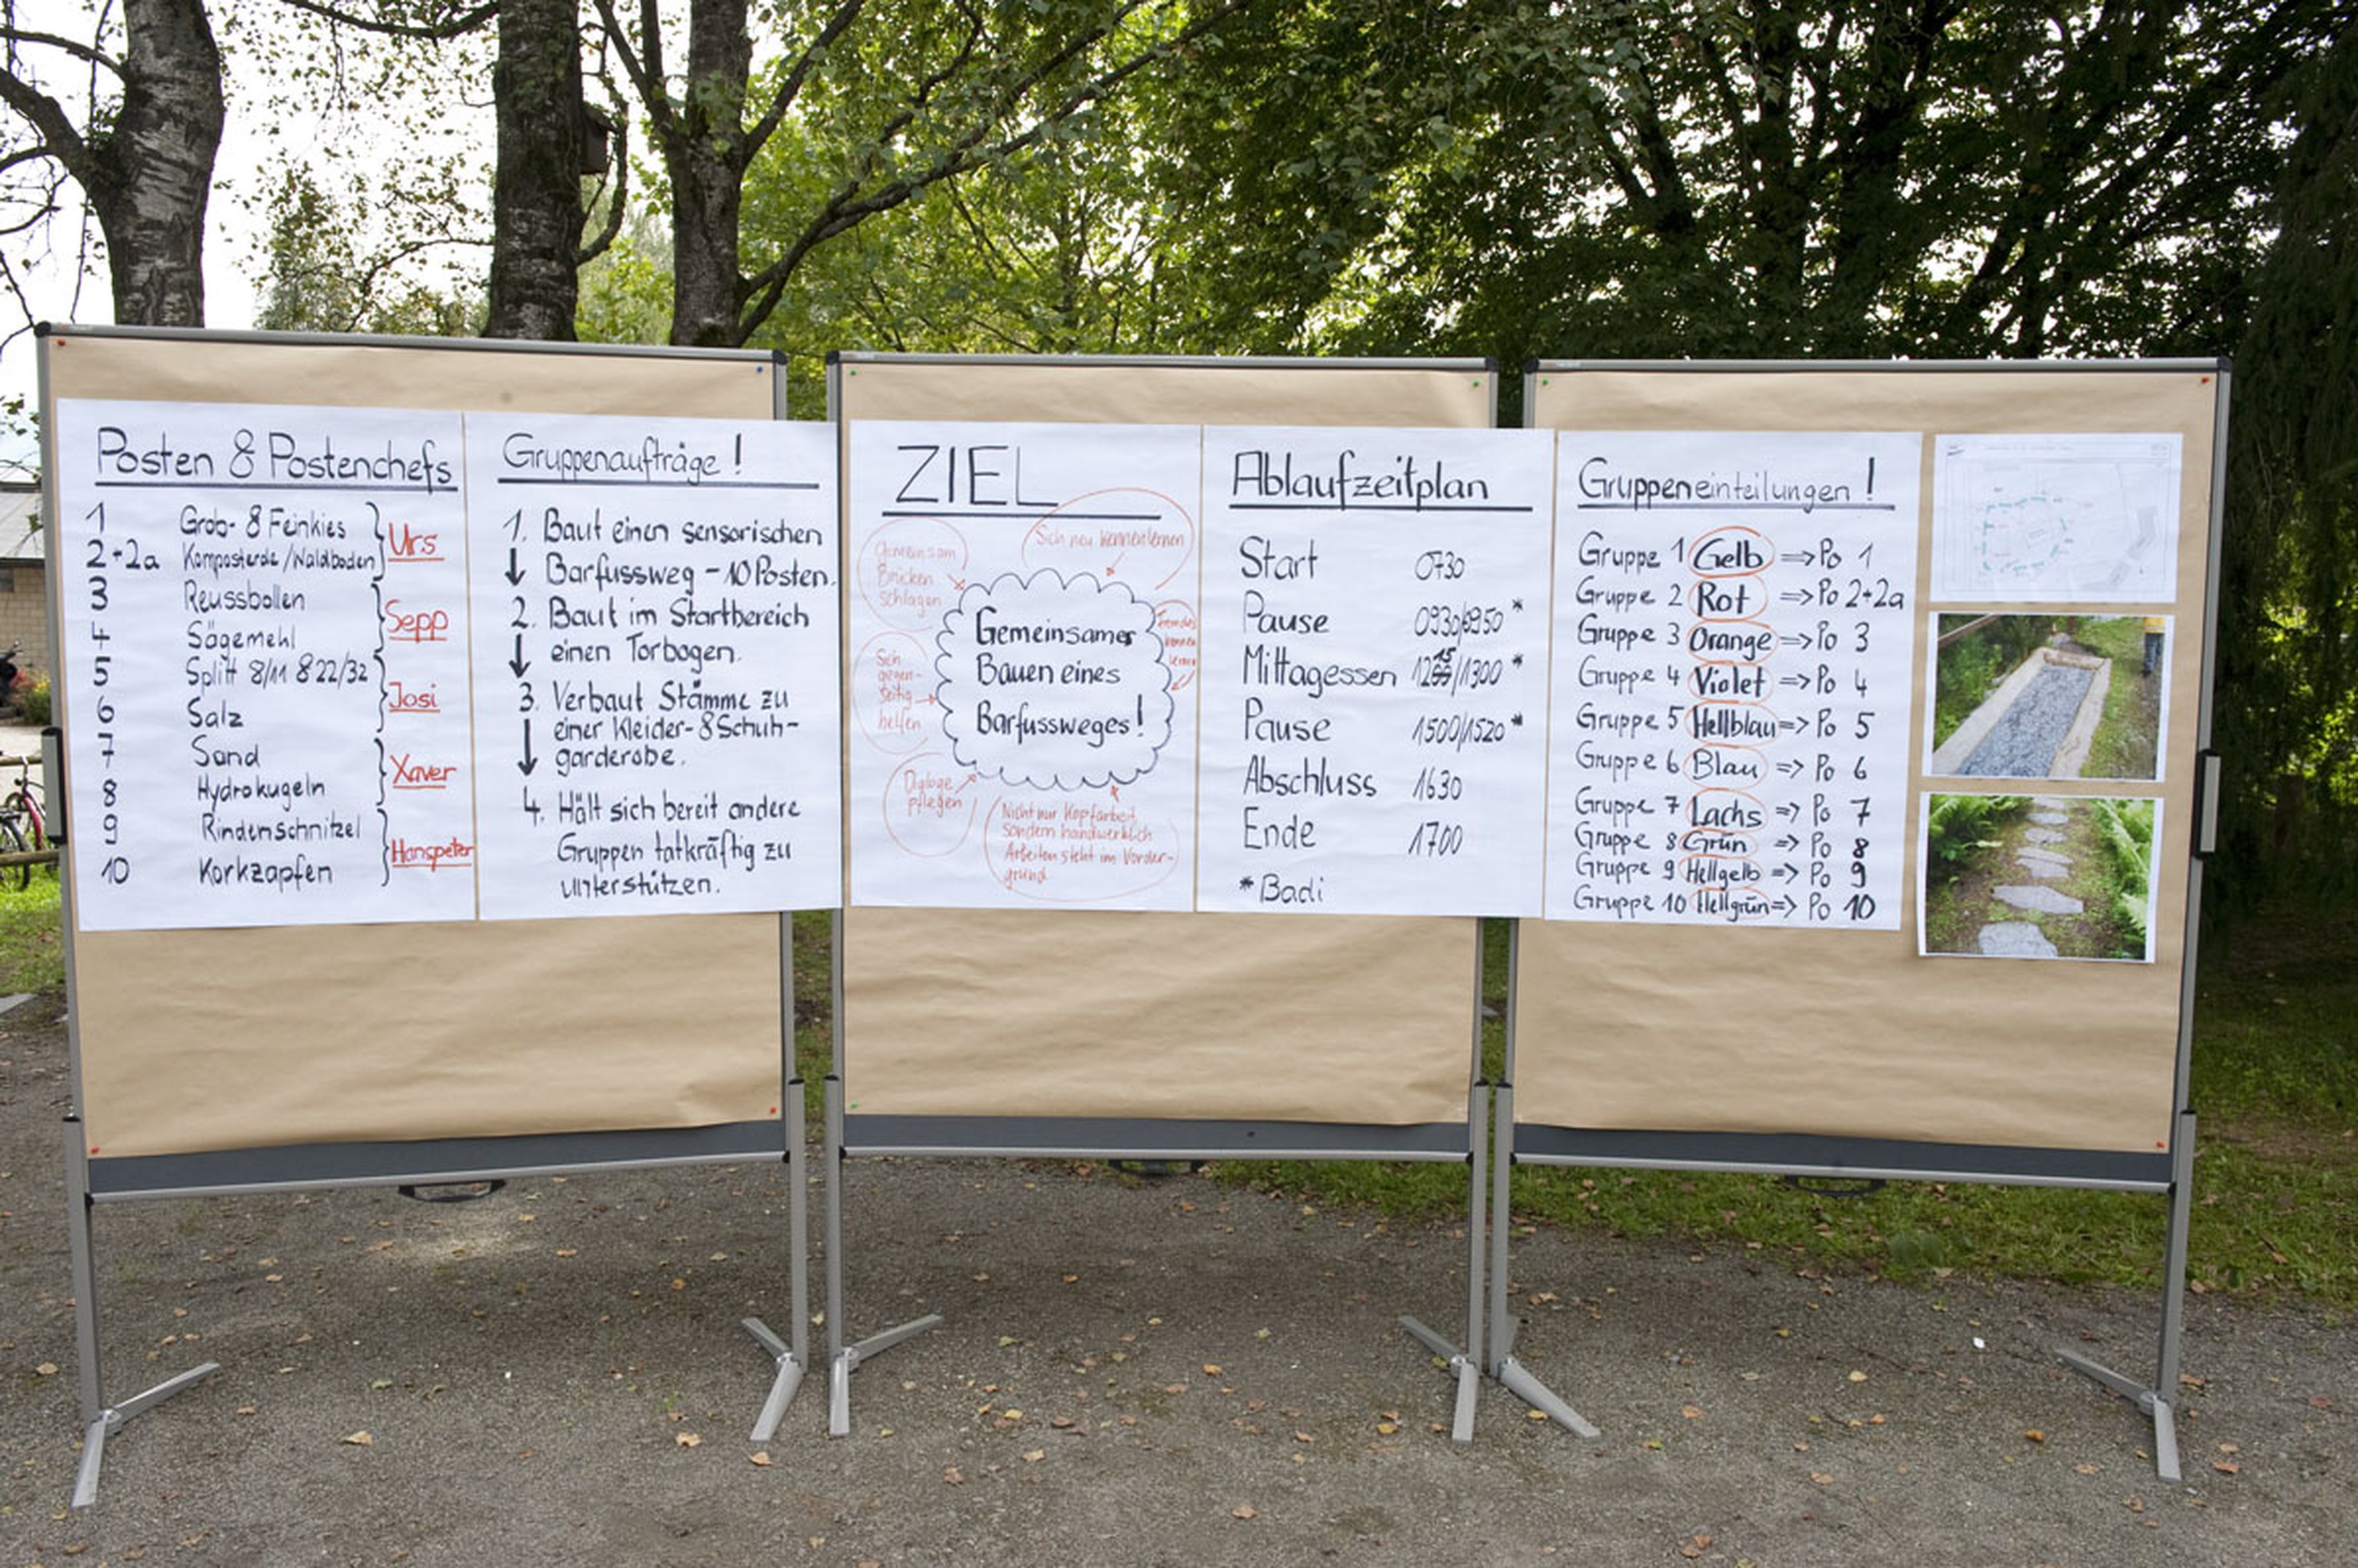 Posten & Postenchefs
1 Grob- & Feinkies
2+2a Komposterde/Waldboden
Urs
3 Reussbollen
4 Sägemehl
Sepp
5 Splitt 8/11 & 22/32
6 Salz
Josi
7 Sand
8 Hydrokugeln
Xaver
9 Rindenschnitzel
10 Korkzapfen
Hanspeter
Gruppenaufträge!
1. Baut einen sensorischen
Barfussweg - 10 Posten.
2. Baut im Startbereich
einen Torbogen.
3. Verbaut Stämme zu
einer Kleider- & Schuh-
garderobe.
4. Hält sich bereit andere
Gruppen tatkräftig zu
unterstützen.
ZIEL
Sich neu kennenlernen
Gemeinsam
Brücken
schlagen
Fremdes
kennen
lernen
Gemeinsamer
Bauen eines
Barfussweges!
Sich
gegen-
seitig
helfen
Dialoge
pflegen
Nicht nur Kopfarbeit
sondern handwerklich
Arbeiten steht im Vorder-
grund
Ablaufzeitplan
Start 0730
Pause 0930/0950 *
Mittagessen 1215/1300 *
Pause 1500/1520 *
Abschluss 1630
Ende 1700
*Badi
Gruppeneinteilungen!
Gruppe 1 Gelb => Po 1
Gruppe 2 Rot => Po 2+2a
Gruppe 3 Orange => Po 3
Gruppe 4 Violet => Po 4
Gruppe 5 Hellblau => Po 5
Gruppe 6 Blau => Po 6
Gruppe 7 Lachs => Po 7
Gruppe 8 Grün => Po 8
Gruppe 9 Hellgelb => Po 9
Gruppe 10 Hellgrün => Po 10